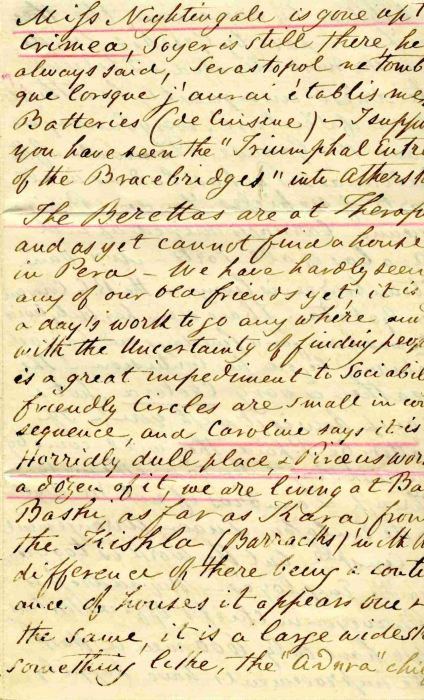 Miss Nightingale is gone up t
Crimea, Soyer is still there, he
always said, Sevastopol ne tomb
que lorsque j'aurai établis me
Batteries (de Cuisine) - I supp
you have seen the "Triumphal Entr
of the Bracebridges" into Atherst
The Berettas are at Therap
and as yet cannot find a house
in Pera - We have hardly seen
any of our old friends yet, it is
a day's work to go any where an
with the Uncertainty of finding peop
is a great impediment to Sociabil
friendly Circles are small in con
sequence, and Caroline says it is
Horridly dull place, & Piræus wor
a dozen of it, we are living at Ba
Bashi, as far as Kara from
the Kishla (Barracks) with
difference of there being a conti
ance of houses it appears one &
the same, it is a large wide st
something like, the "Adura" chi